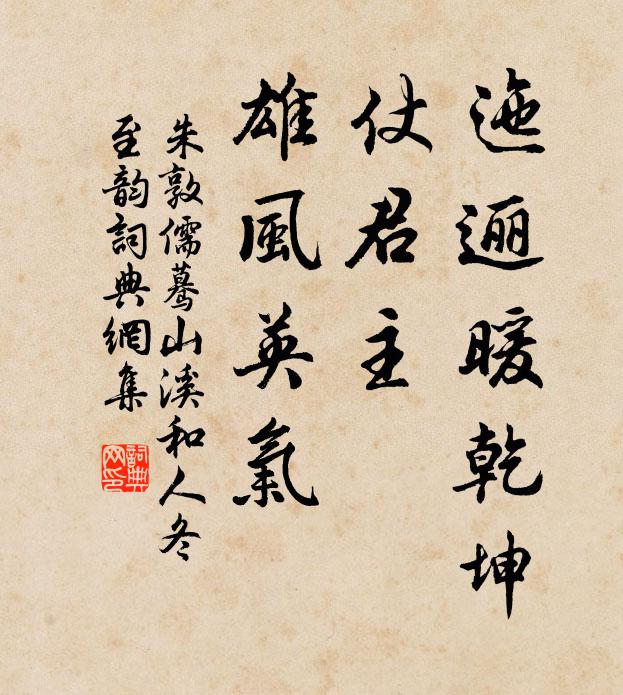 迤逦暖乾坤
仗君主
雄風英氣
朱敦儒驀山溪和人冬
至韵詞典網集
詞典网印